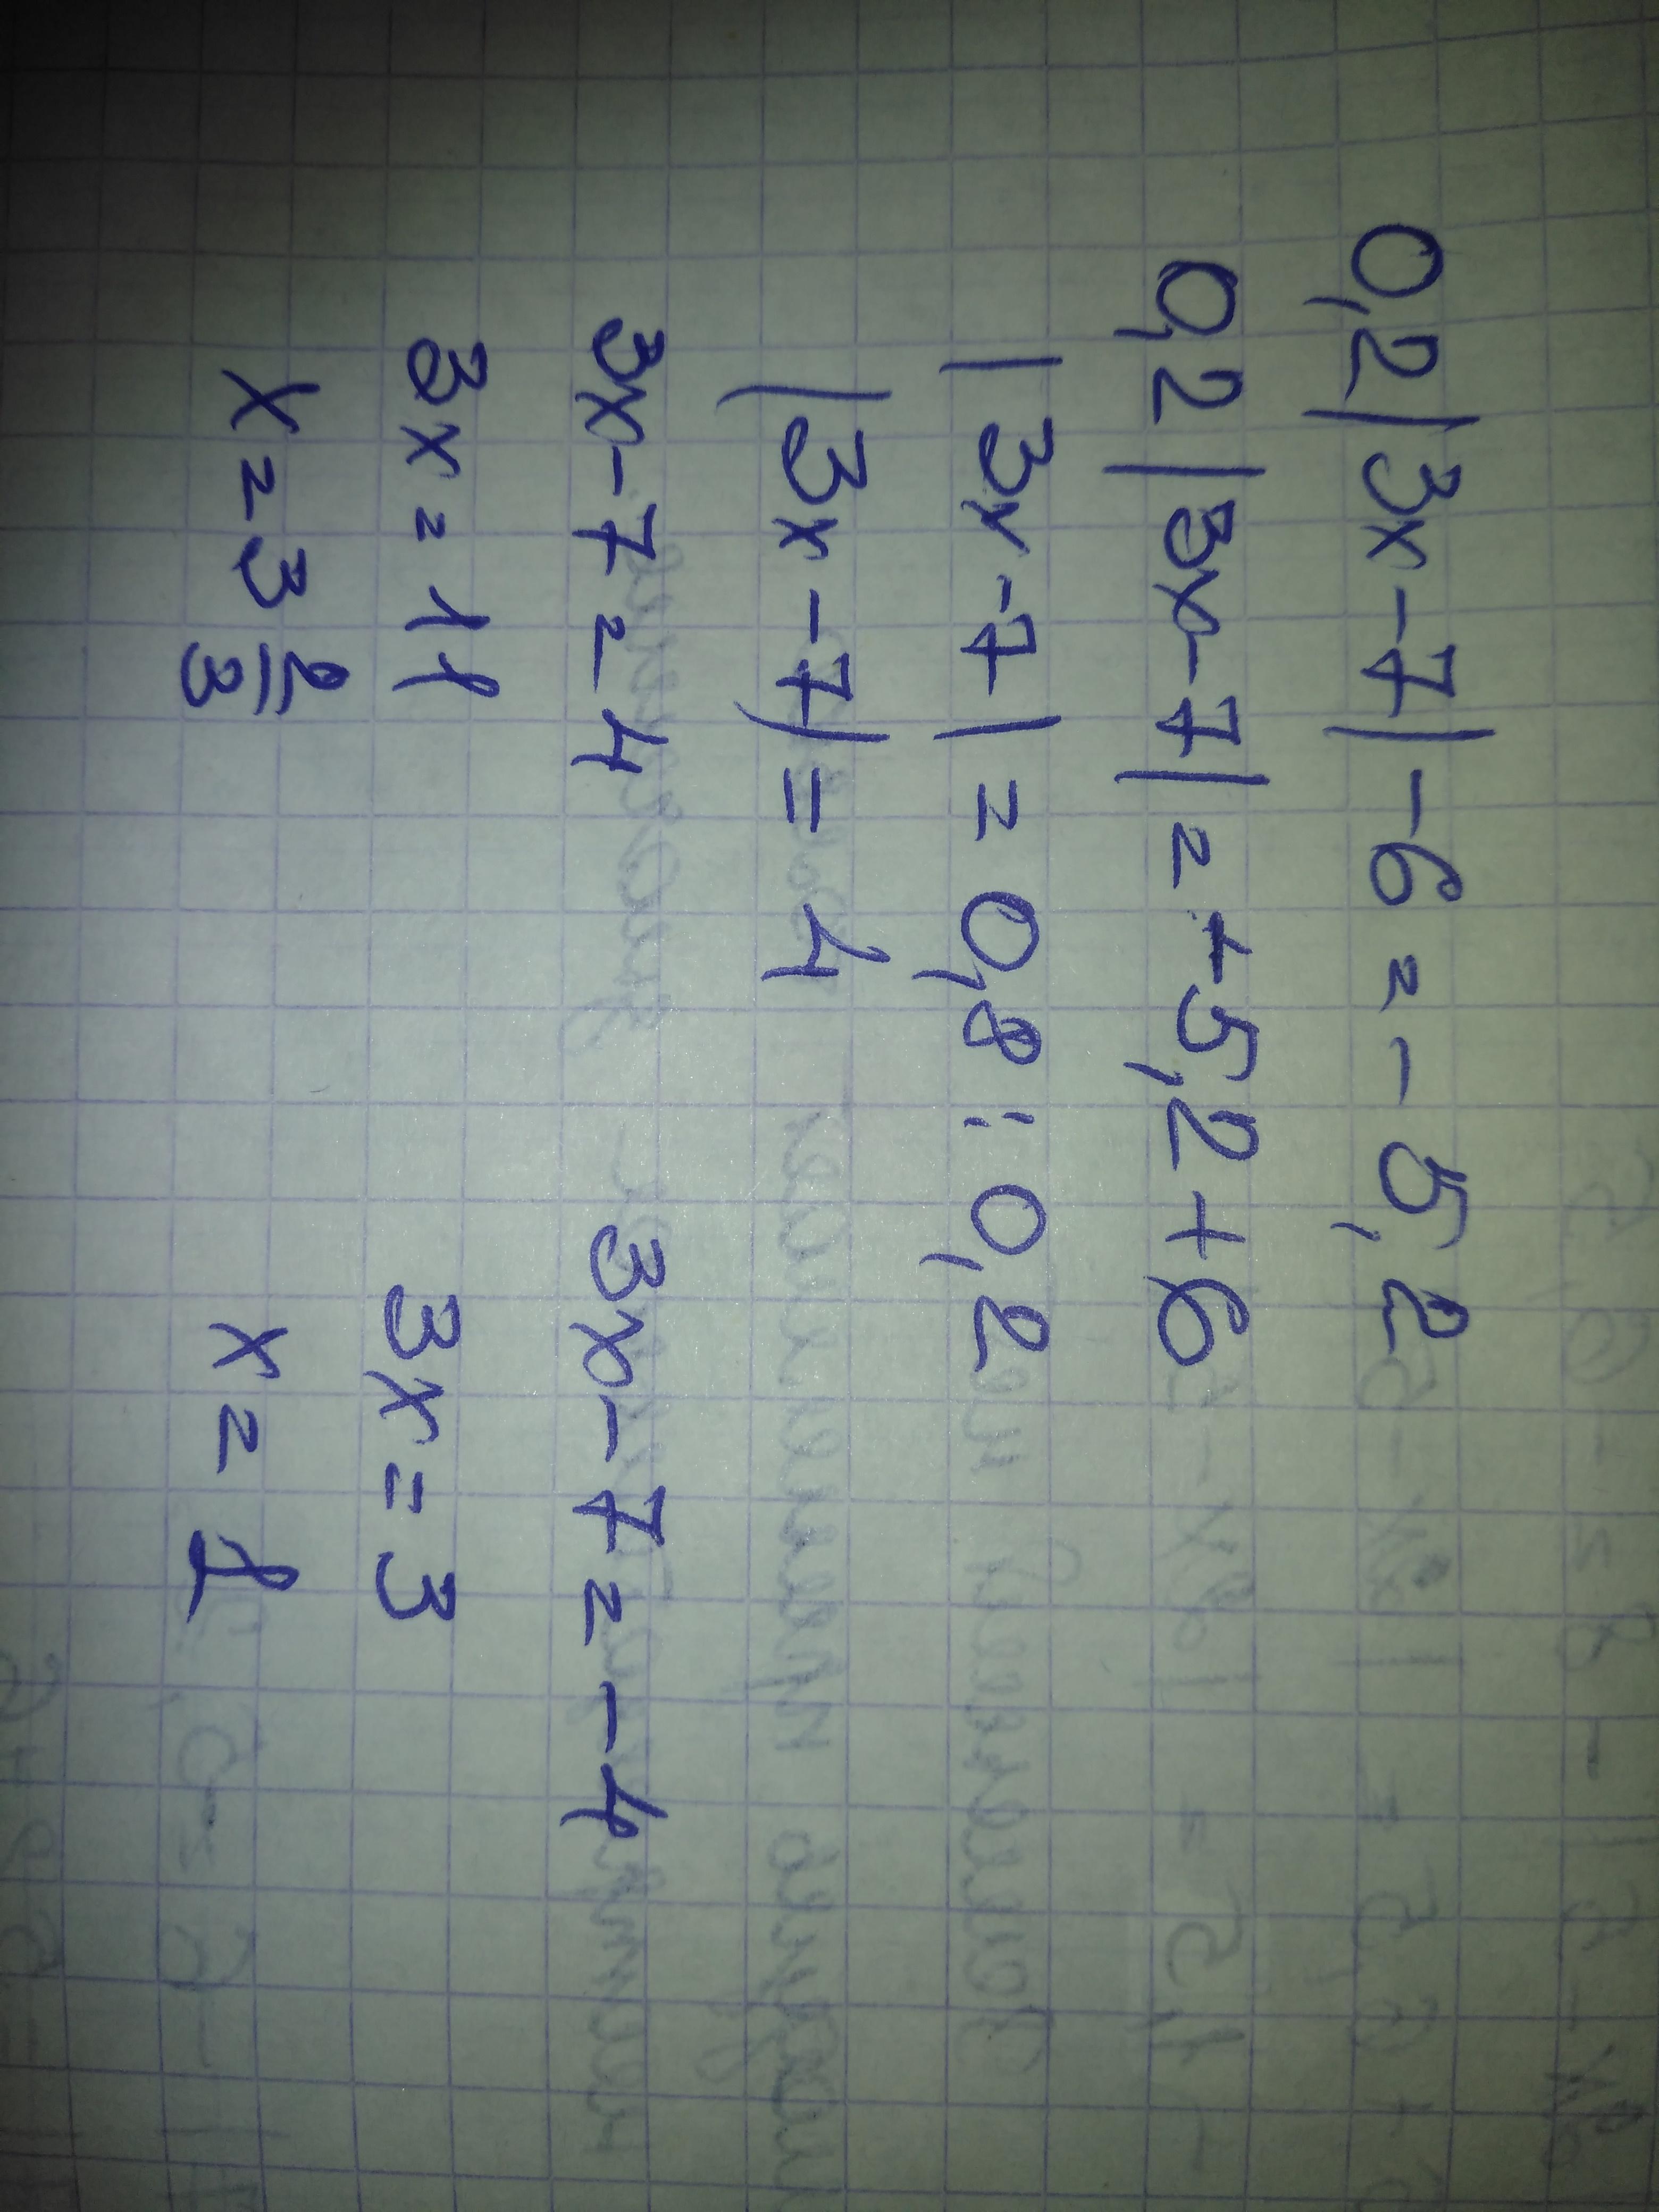 0,2|3x-7|-6=-5,2
0,2|3x-7|=+5,2+6
|3x-7|=0,8:0,2
|3x-7|=4
3x-7=4 3x-7=-4
3x=11 3x=3
x=3 2/3 x=1